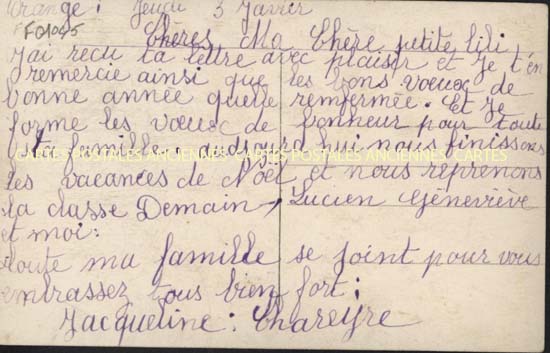 Orange : Jeudi 3 Janvier
F01045
Chères Ma Chère petite lili
J'ai reçu ta lettre avec plaisir et Je t'en
remercie ainsi que les bons vœux de
bonne année qu'elle renfermée. Et Je
forme les vœux de bonheur pour toute
ta famille. audjourd'hui nous finissons
CARTES POSTALES ANCIENNES CARTES POSTALES ANCIENNES CARTES
les vacances de Noël et nous reprenons
la classe Demain, Lucien Gèneviève
et moi:
toute ma famille se joint pour vous
embrassez tous bien fort;
Jacqueline : Chareyre